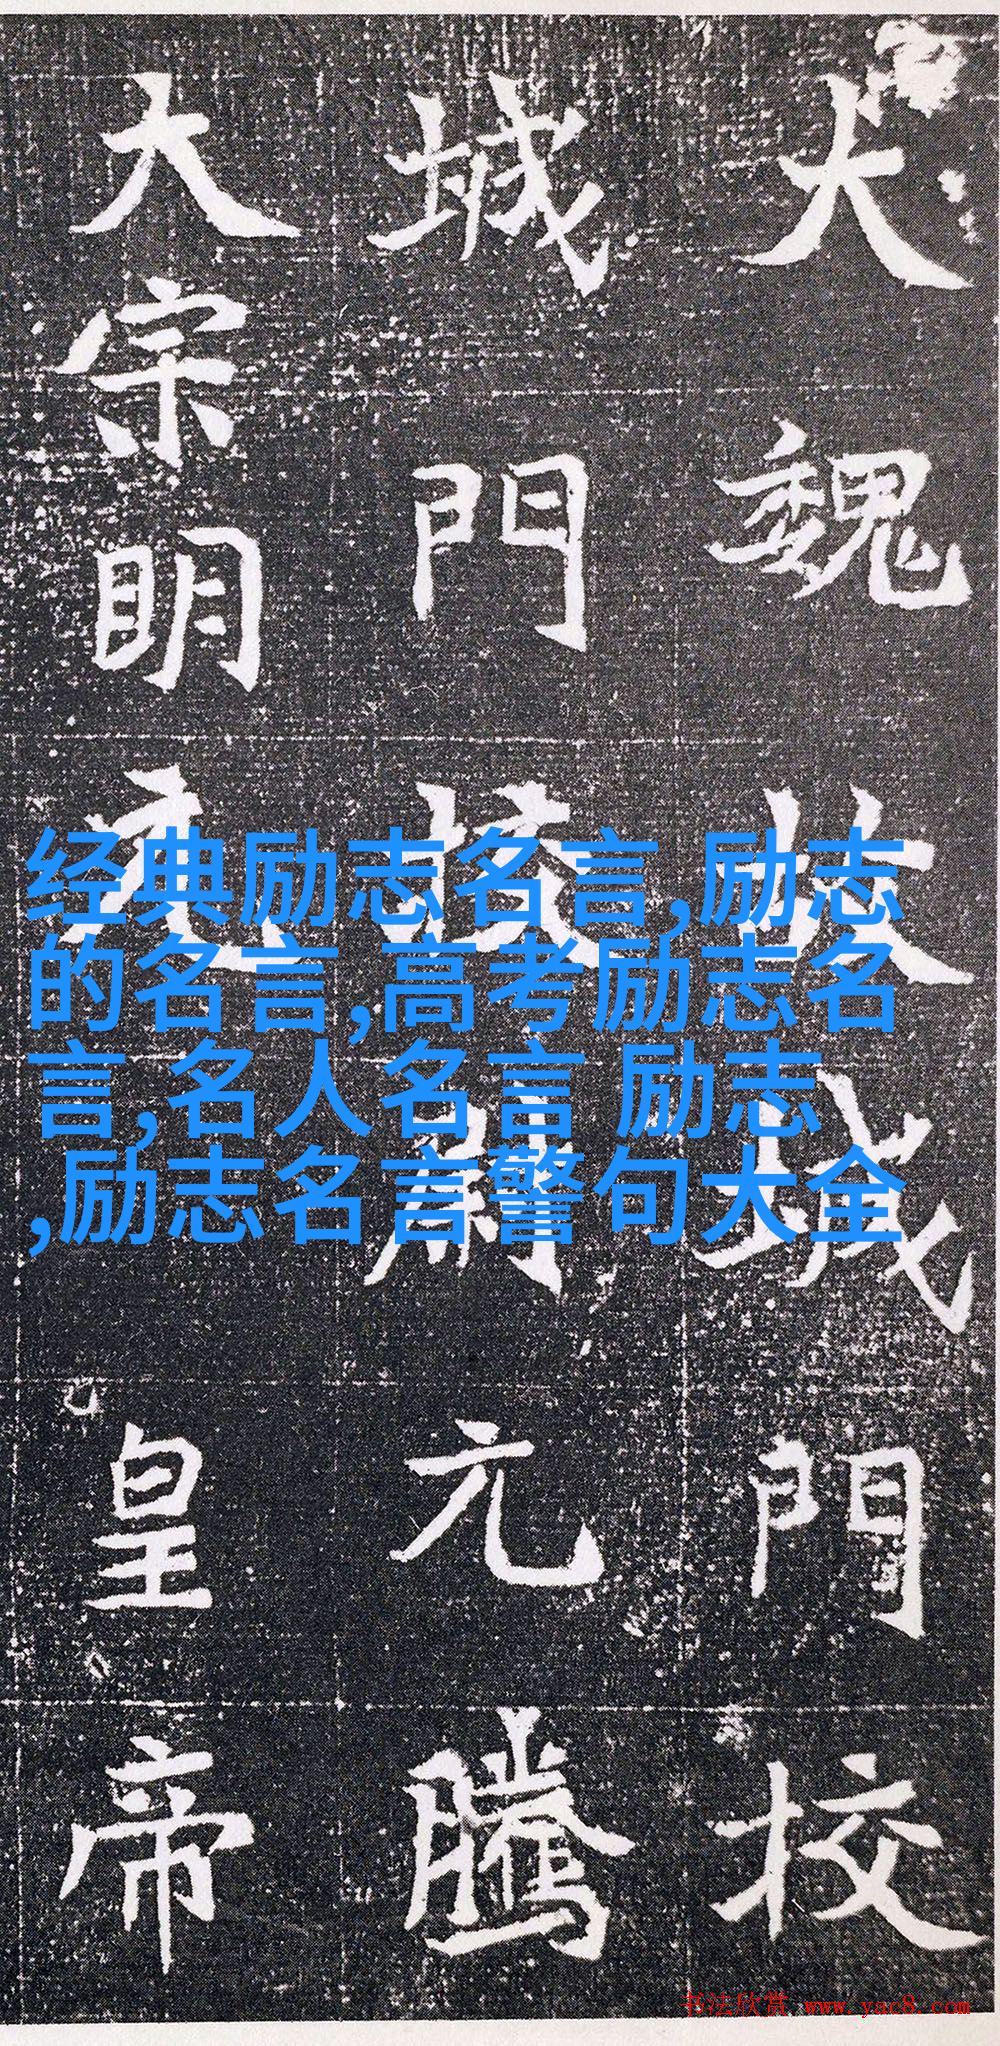 大魏故城門校
城門校尉元騰
大宗明元皇帝
经典励志名言,励志
的名言,高考励志名
言,名人名言 励志
,励志名言警句大全
书法欣赏 www.yac8.com